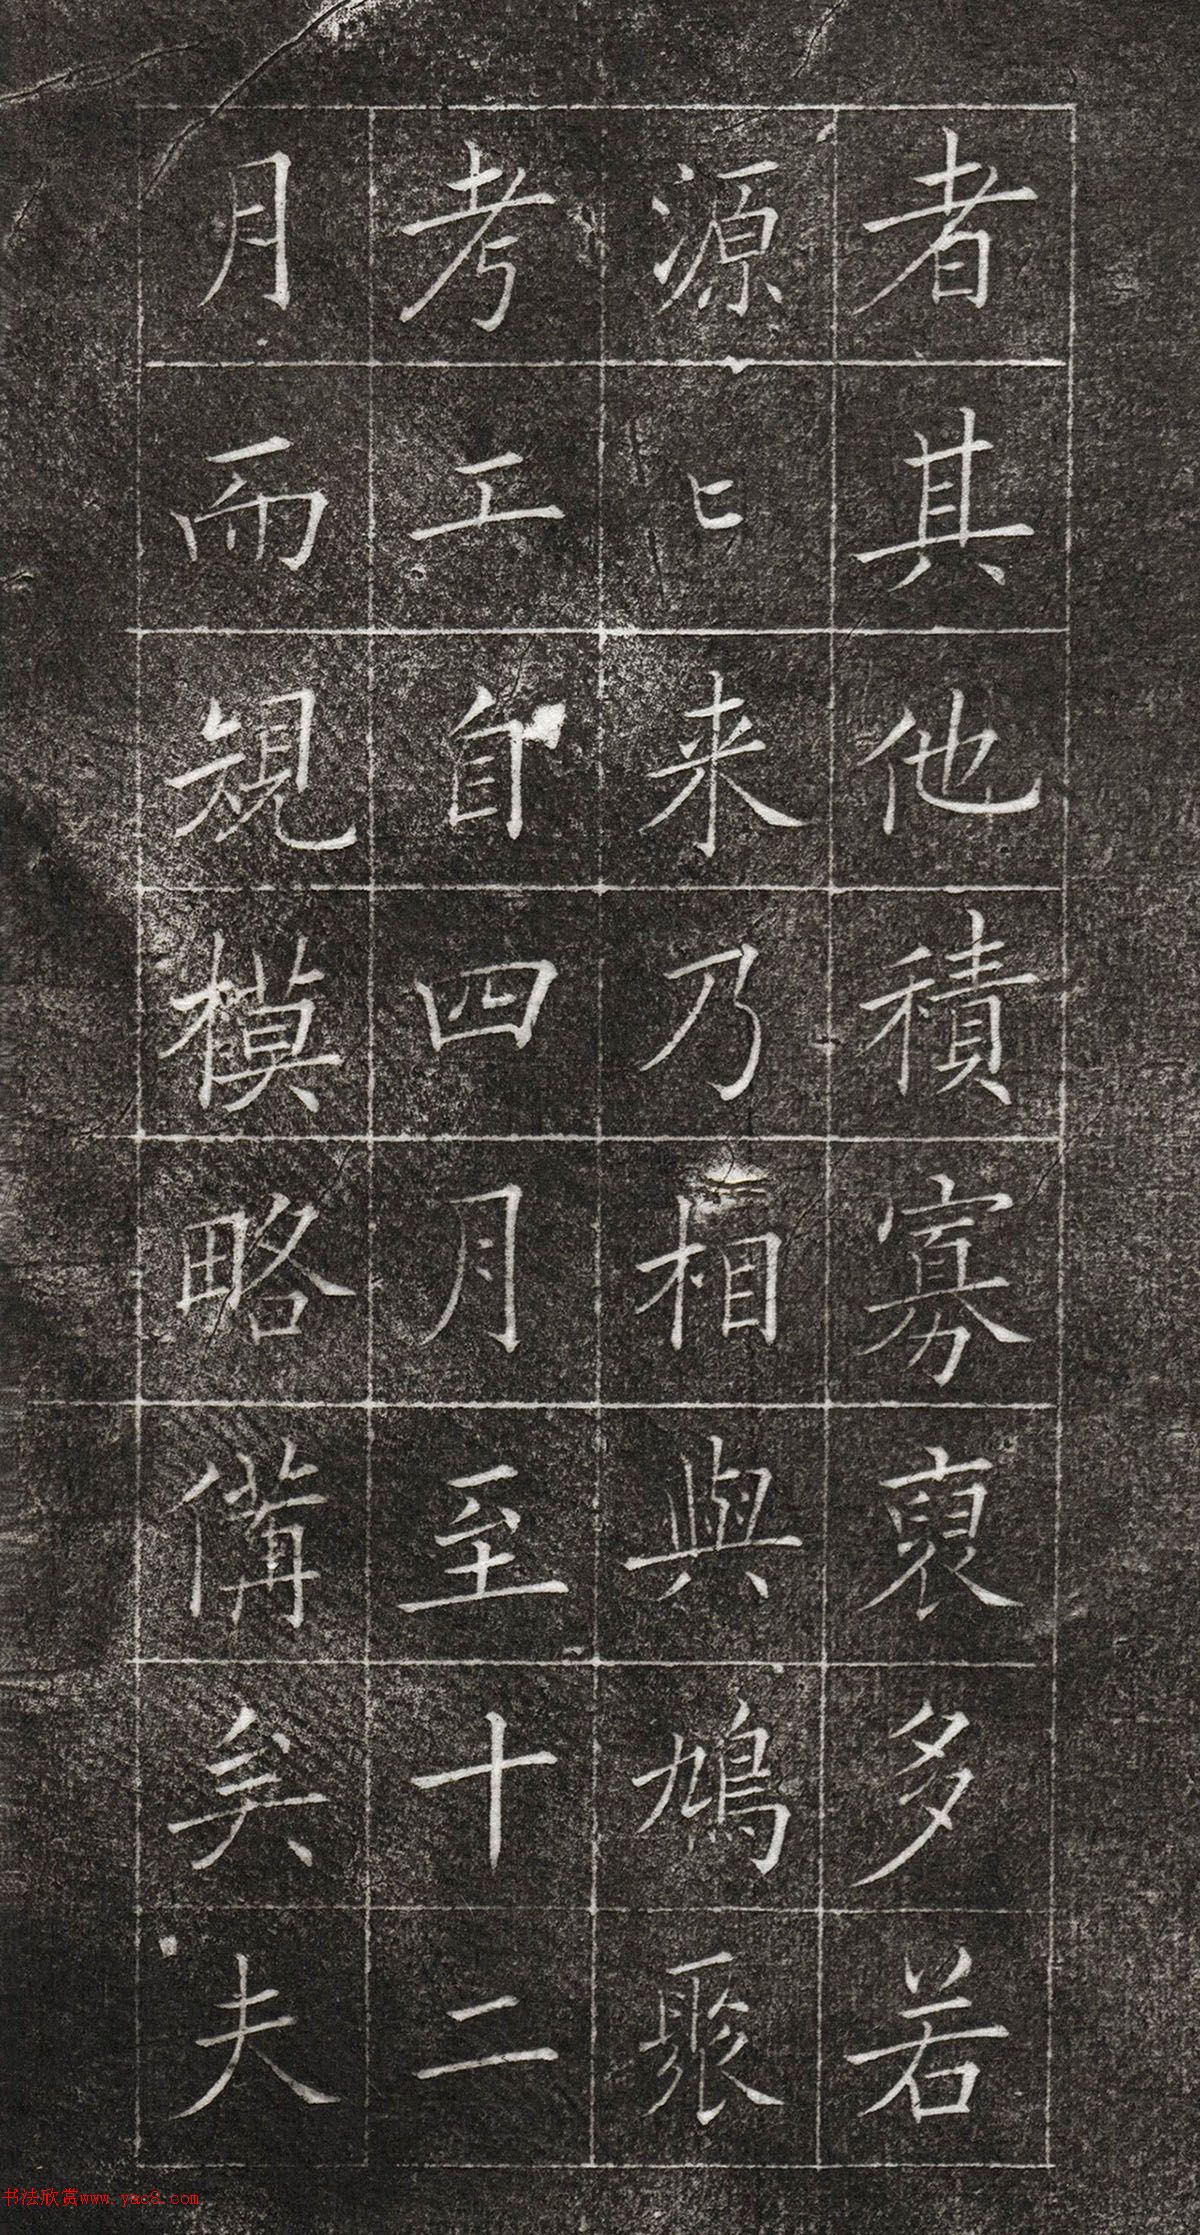 者其他積寡裒多若
源〻来乃相與鳩聚
考工自四月至十二
月而規模略備矣夫
书法欣赏www.yac8.com